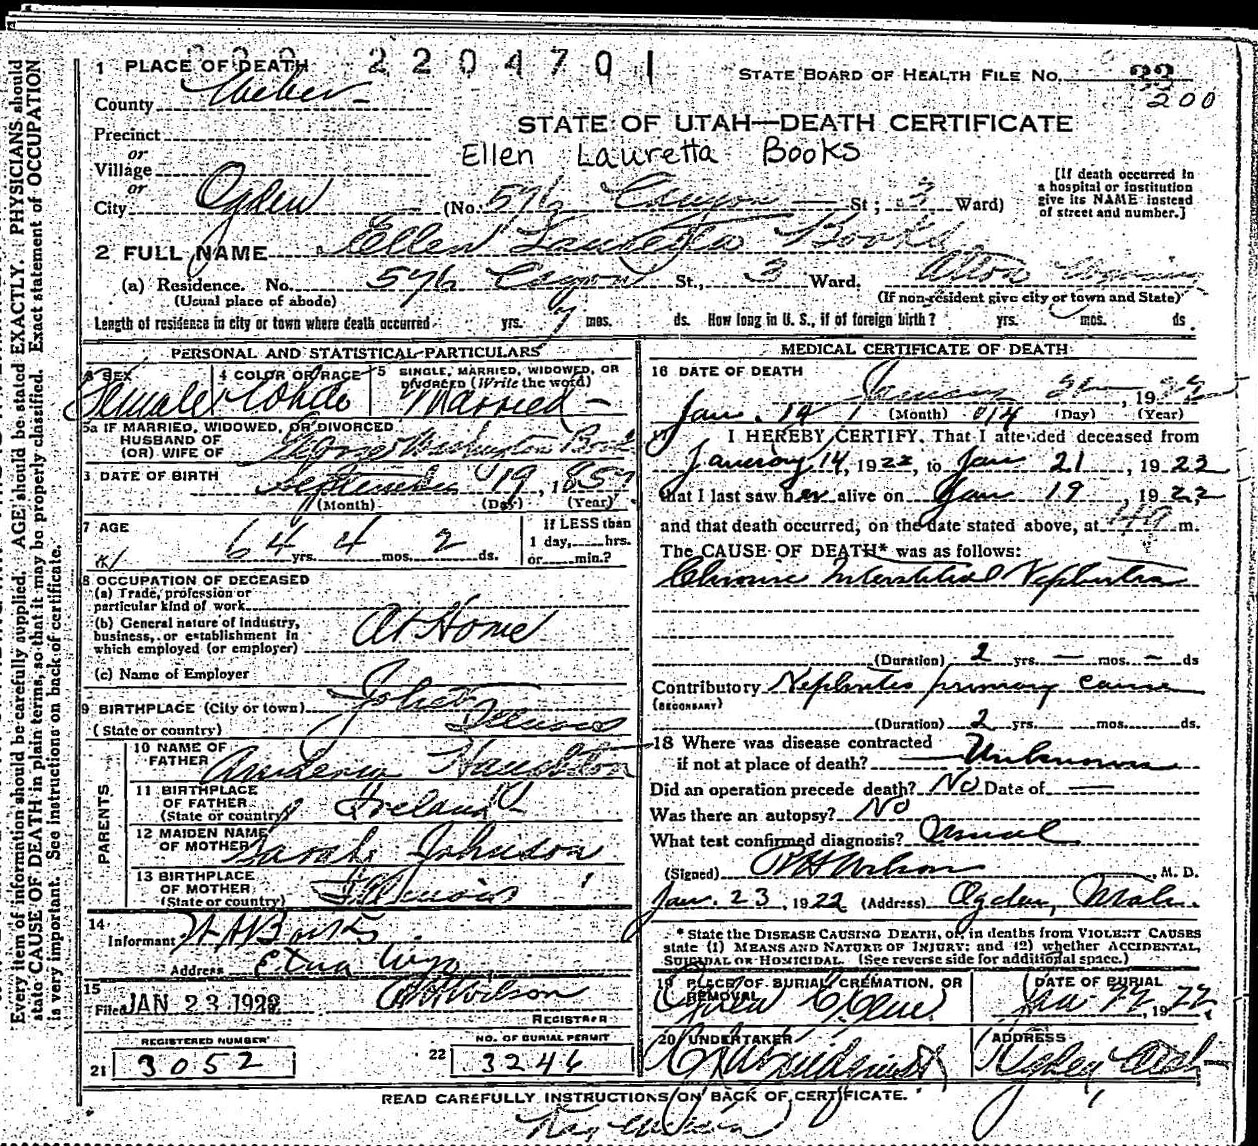 2204701
1 PLACE OF DEATH
STATE BOARD OF HEALTH FILE NO. 22
200
County Weber
STATE OF UTAH—DEATH CERTIFICATE
Precinct
Ellen Lauretta Books
or
Village
or
City Ogden (No. 576 Canyon St; 3 Ward)
[If death occurred in a hospital or institution give its NAME instead of street and number.]
2 FULL NAME Ellen Lauretta Books
(a) Residence. No. 576 Canyon St., 3 Ward. Afton Wyoming
(Usual place of abode) (If non-resident give city or town and State)
Length of residence in city or town where death occurred yrs. mos. ds. How long in U. S., if of foreign birth? yrs. mos. ds.
PERSONAL AND STATISTICAL PARTICULARS
3 SEX Female
4 COLOR OR RACE White
5 SINGLE, MARRIED, WIDOWED, OR DIVORCED (Write the word) Married
5a IF MARRIED, WIDOWED, OR DIVORCED
HUSBAND OF
(OR) WIFE OF George Washington Books
DATE OF BIRTH September 19, 1857
(Month) (Day) (Year)
7 AGE 64 yrs. 4 mos. 2 ds.
If LESS than 1 day, hrs. or min.?
8 OCCUPATION OF DECEASED
(a) Trade, profession or particular kind of work
(b) General nature of industry, business, or establishment in which employed (or employer) At Home
(c) Name of Employer
9 BIRTHPLACE (City or town) Joliet
(State or country) Illinois
PARENTS
10 NAME OF FATHER Haughton
11 BIRTHPLACE OF FATHER (State or country) Ireland
12 MAIDEN NAME OF MOTHER Sarah Johnson
13 BIRTHPLACE OF MOTHER (State or country) Illinois
14
Informant Books
Address Etna Wyo
15
Filed JAN 23 1922 Wilson
REGISTRAR
REGISTERED NUMBER
21 3052
NO. OF BURIAL PERMIT
22 3246
MEDICAL CERTIFICATE OF DEATH
16 DATE OF DEATH January 21, 1922
Jan. 14 (Month) (Day) (Year)
I HEREBY CERTIFY, That I attended deceased from
January 14, 1922, to Jan 21, 1922
that I last saw her alive on Jan 19, 1922
and that death occurred, on the date stated above, at m.
The CAUSE OF DEATH* was as follows:
Chronic Interstitial Nephritis
(Duration) 2 yrs. — mos. — ds
Contributory Nephritis primary cause
(SECONDARY)
(Duration) 2 yrs. mos. ds.
18 Where was disease contracted
if not at place of death? Unknown
Did an operation precede death? No Date of —
Was there an autopsy? No
What test confirmed diagnosis? Usual
(Signed) R H Wilson, M. D.
Jan. 23, 1922 (Address) Ogden, Utah.
* State the DISEASE CAUSING DEATH, or, in deaths from VIOLENT CAUSES
state (1) MEANS AND NATURE OF INJURY; and (2) whether ACCIDENTAL,
SUICIDAL OR HOMICIDAL. (See reverse side for additional space.)
19 PLACE OF BURIAL, CREMATION, OR REMOVAL
DATE OF BURIAL
Jan 22, 1922.
20 UNDERTAKER
ADDRESS
Ogden Utah
READ CAREFULLY INSTRUCTIONS ON BACK OF CERTIFICATE.
Every item of information should be carefully supplied. AGE should be stated EXACTLY. PHYSICIANS should
state CAUSE OF DEATH in plain terms, so that it may be properly classified. Exact statement of OCCUPATION
is very important. See instructions on back of certificate.